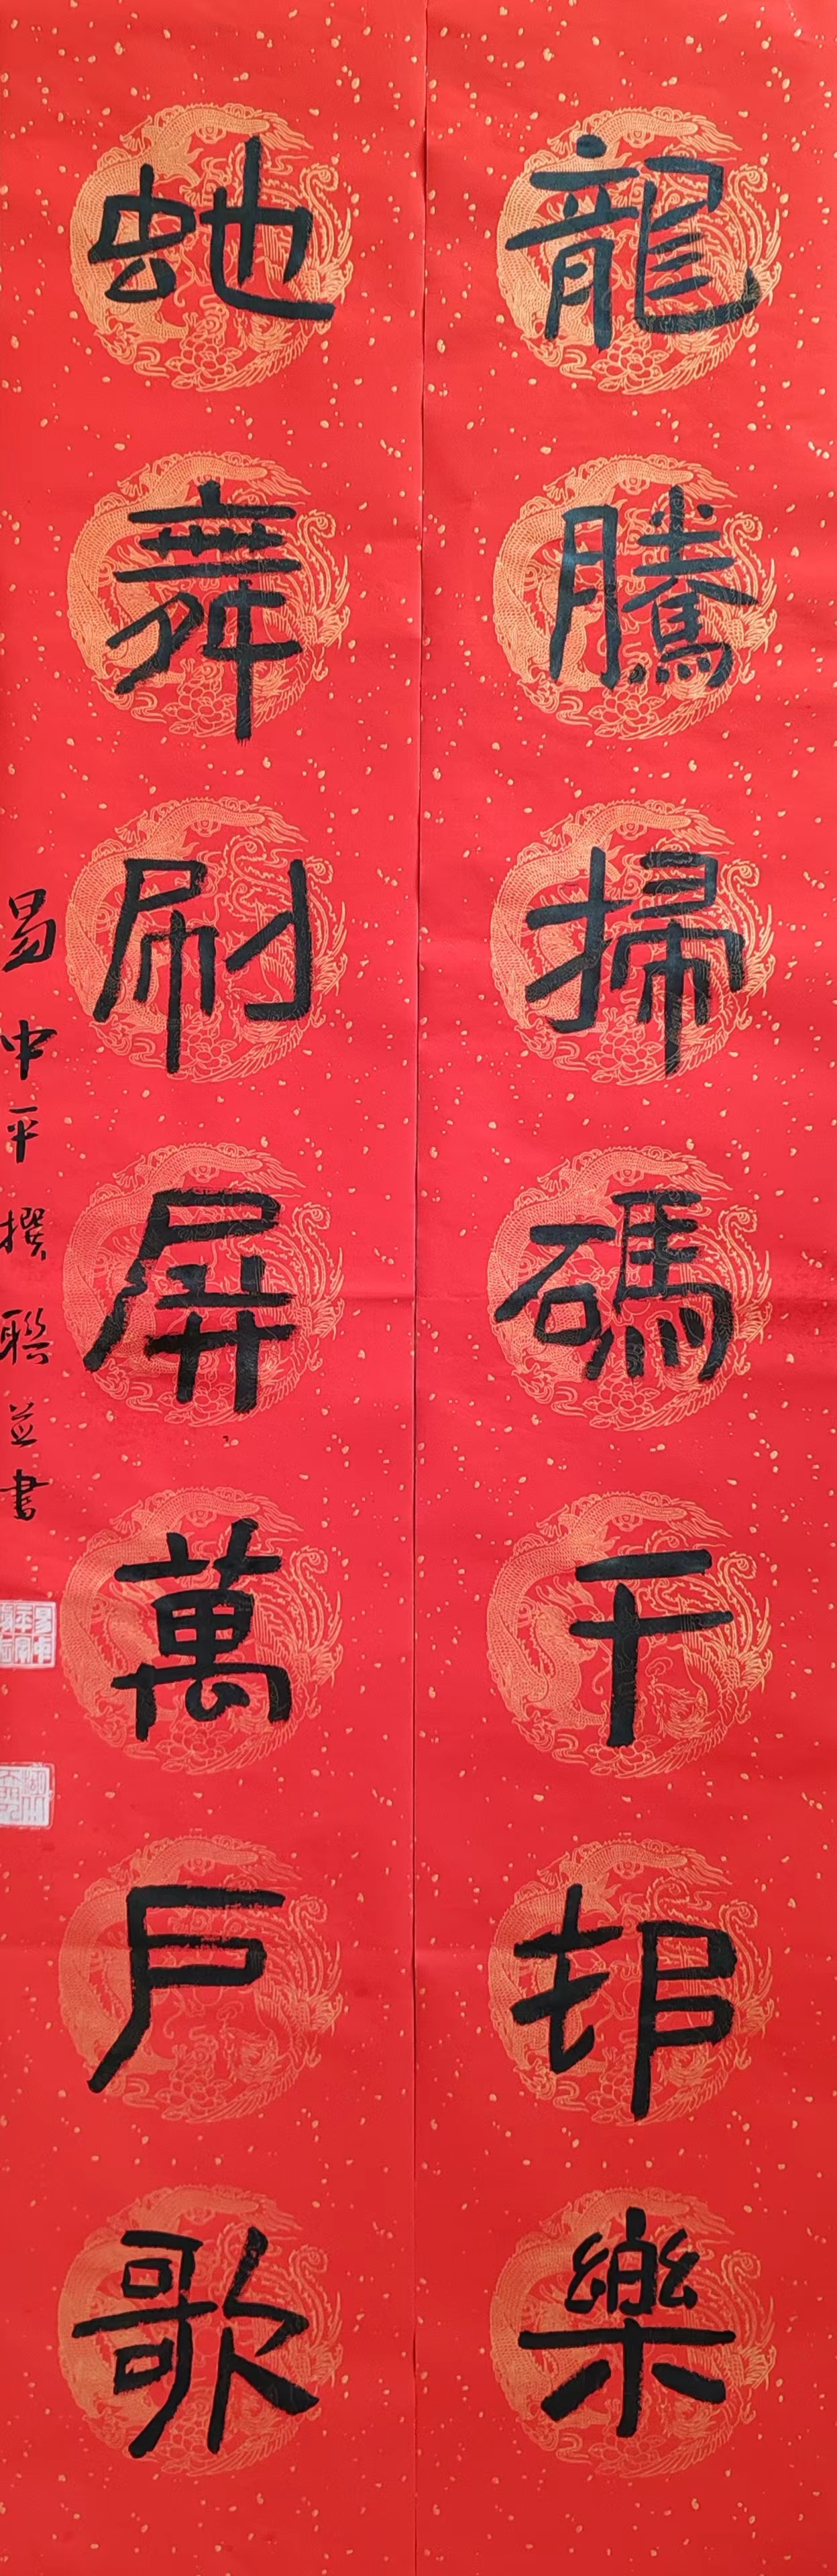 龍騰掃碼千邨樂
虵舞刷屏萬戶歌
易中平撰聯並書